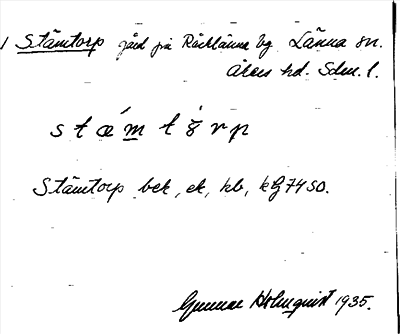 1 Stämtorp gård på Räcklänne by Länna sn.
Åkers hd. Sdm. l.
stæ´m tȯrp
Stämtorp bek, ek, kb, kg 7450.
Gunnar Holmquist 1935.